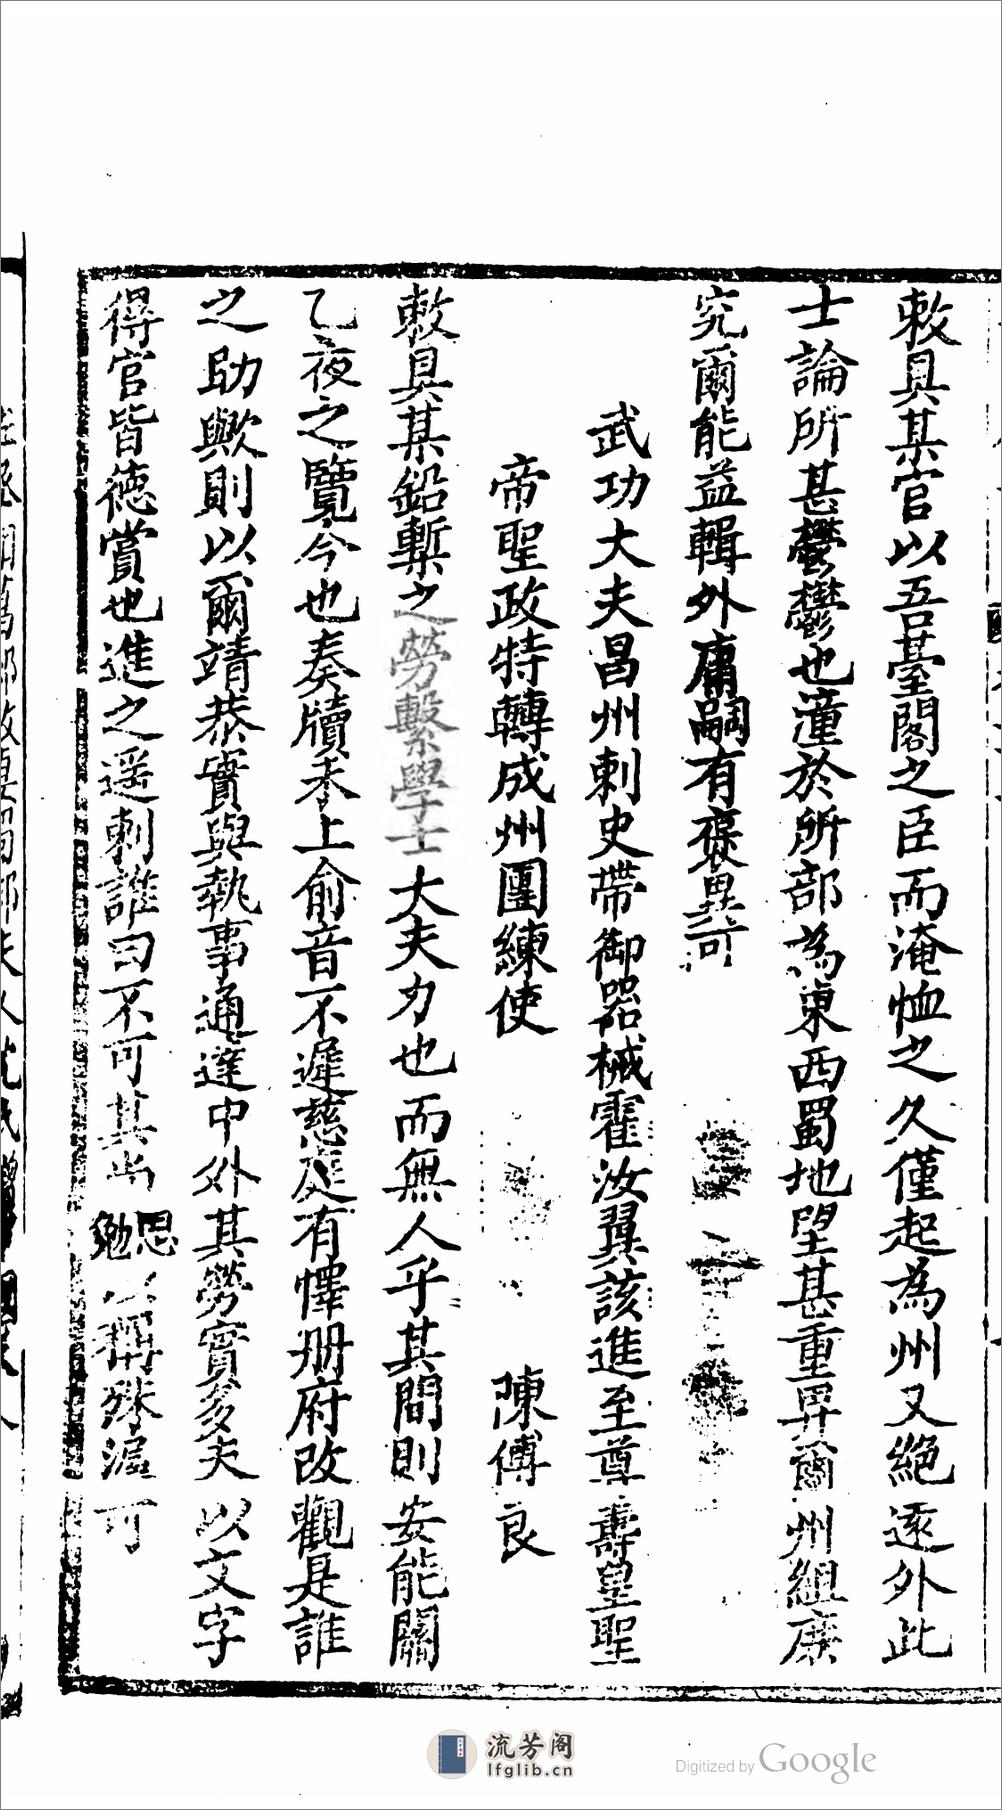 敕具某官以吾臺閣之臣而淹恤之久僅起為州又絕遠外此
士論所甚鬱鬱也潼於所部為東西蜀地望甚重畀爾州組庶
究爾能益輯外庸嗣有褒異可
武功大夫昌州刺史帶御器械霍汝翼該進至尊壽皇聖
帝聖政特轉成州團練使 陳傅良
敕具某鉛槧之勞繫學士大夫力也而無人乎其間則安能關
乙夜之覽今也奏牘禾上俞音不遲慈庭有懌册府改觀是誰
之助歟則以爾靖恭實與執事通達中外其勞實多夫以文字
得官皆德賞也進之遥刺誰曰不可其尚思勉以稱殊渥可
流芳阁
lfglib.cn
Digitized by Google